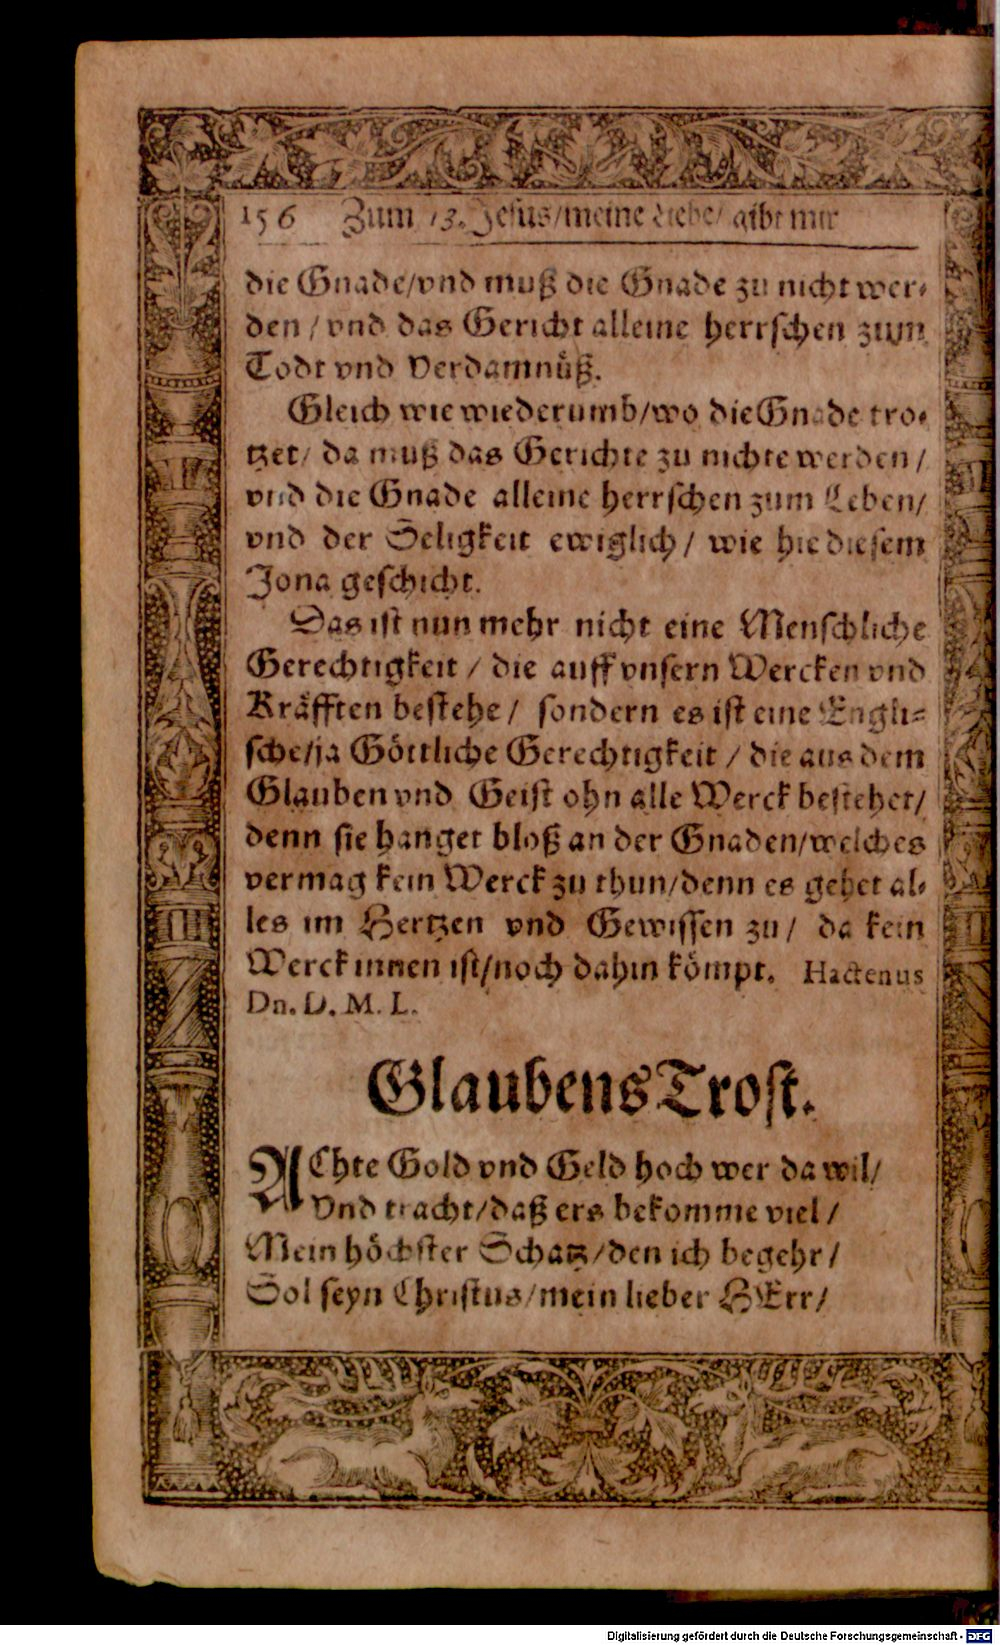 156 Zum 13. Jesus/meine Liebe/ gibt mir
die Gnade/vnd muß die Gnade zu nicht wer-
den / vnd das Gericht alleine herrschen zum
Todt vnd Verdamnüß.
Gleich wie wiederumb/wo die Gnade tro-
tzet/ da muß das Gerichte zu nichte werden /
vnd die Gnade alleine herrschen zum Leben/
vnd der Seligkeit ewiglich / wie hie diesem
Jona geschicht.
Das ist nun mehr nicht eine Menschliche
Gerechtigkeit / die auff vnsern Wercken vnd
Kräfften bestehe / sondern es ist eine Engli-
sche/ja Göttliche Gerechtigkeit / die aus dem
Glauben vnd Geist ohn alle Werck bestehet/
denn sie hanget bloß an der Gnaden/welches
vermag kein Werck zu thun/denn es gehet al-
les im Hertzen vnd Gewissen zu / da kein
Werck innen ist/noch dahin kömpt. Hactenus
Dn. D. M. L.
Glaubens Trost.
AChte Gold vnd Geld hoch wer da wil/
Vnd tracht/daß ers bekomme viel /
Mein höchster Schatz/den ich begehr /
Sol seyn Christus/mein lieber HErr/
Digitalisierung gefördert durch die Deutsche Forschungsgemeinschaft - DFG